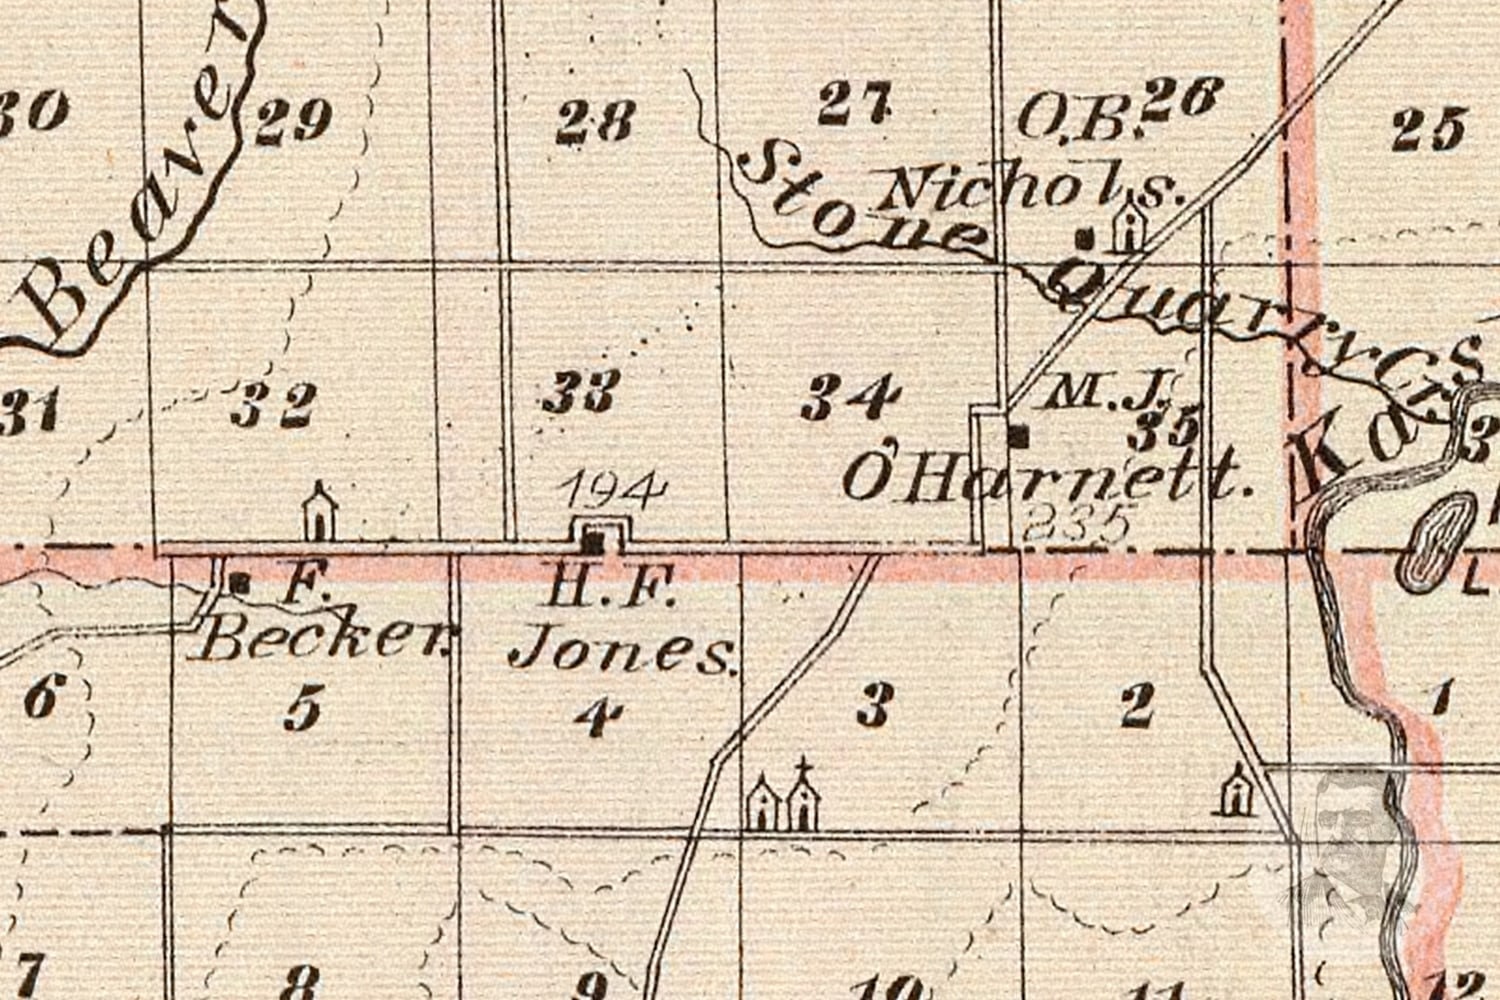 30
Beaver
29
28
27
O.B.
26
25
Nichols.
Stone Quarry Cr.
31
32
33
34
M.J.
35
O'Harnett.
235
194
Kas
F.
Becker.
H.F.
Jones.
6
5
4
3
2
1
7
8
9
10
11
12